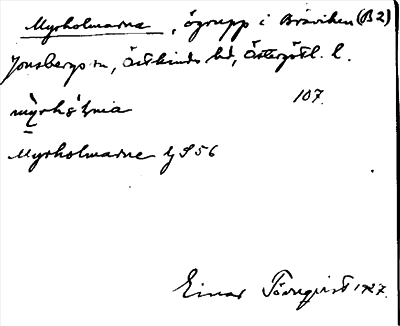 Myrholmarna, ögrupp i Bråviken (B2)
Jonsbergs sn, Östkinds hd, Östergötl. l.
107.
Myrholmarne GS 56
Einar Törnqvist 1927.